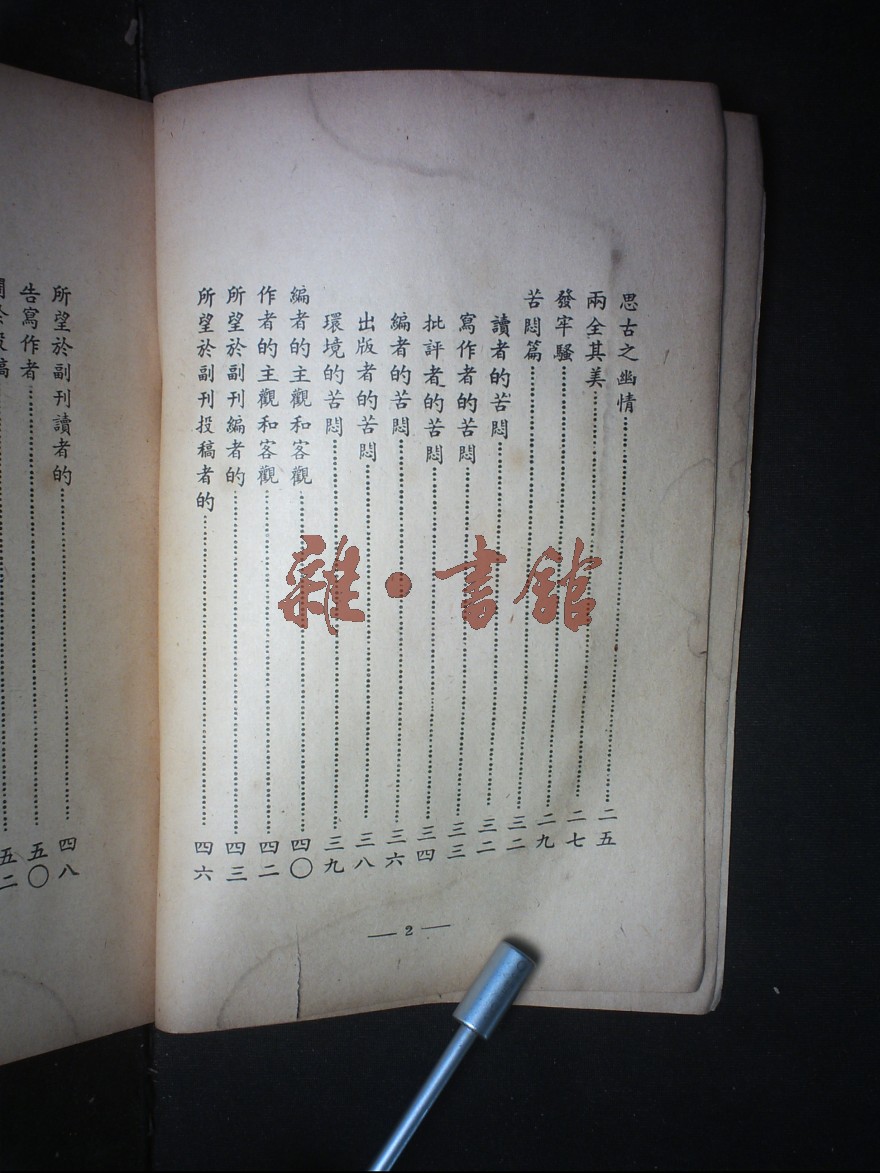 思古之幽情……二五
兩全其美……二七
發牢騷……二九
苦悶篇……三二
讀者的苦悶……三二
寫作者的苦悶……三三
批評者的苦悶……三四
編者的苦悶……三六
出版者的苦悶……三八
環境的苦悶……三九
編者的主觀和客觀……四〇
作者的主觀和客觀……四二
所望於副刊編者的……四三
所望於副刊投稿者的……四六
— 2 —
所望於副刊讀者的……四八
告寫作者……五〇
雜·書館